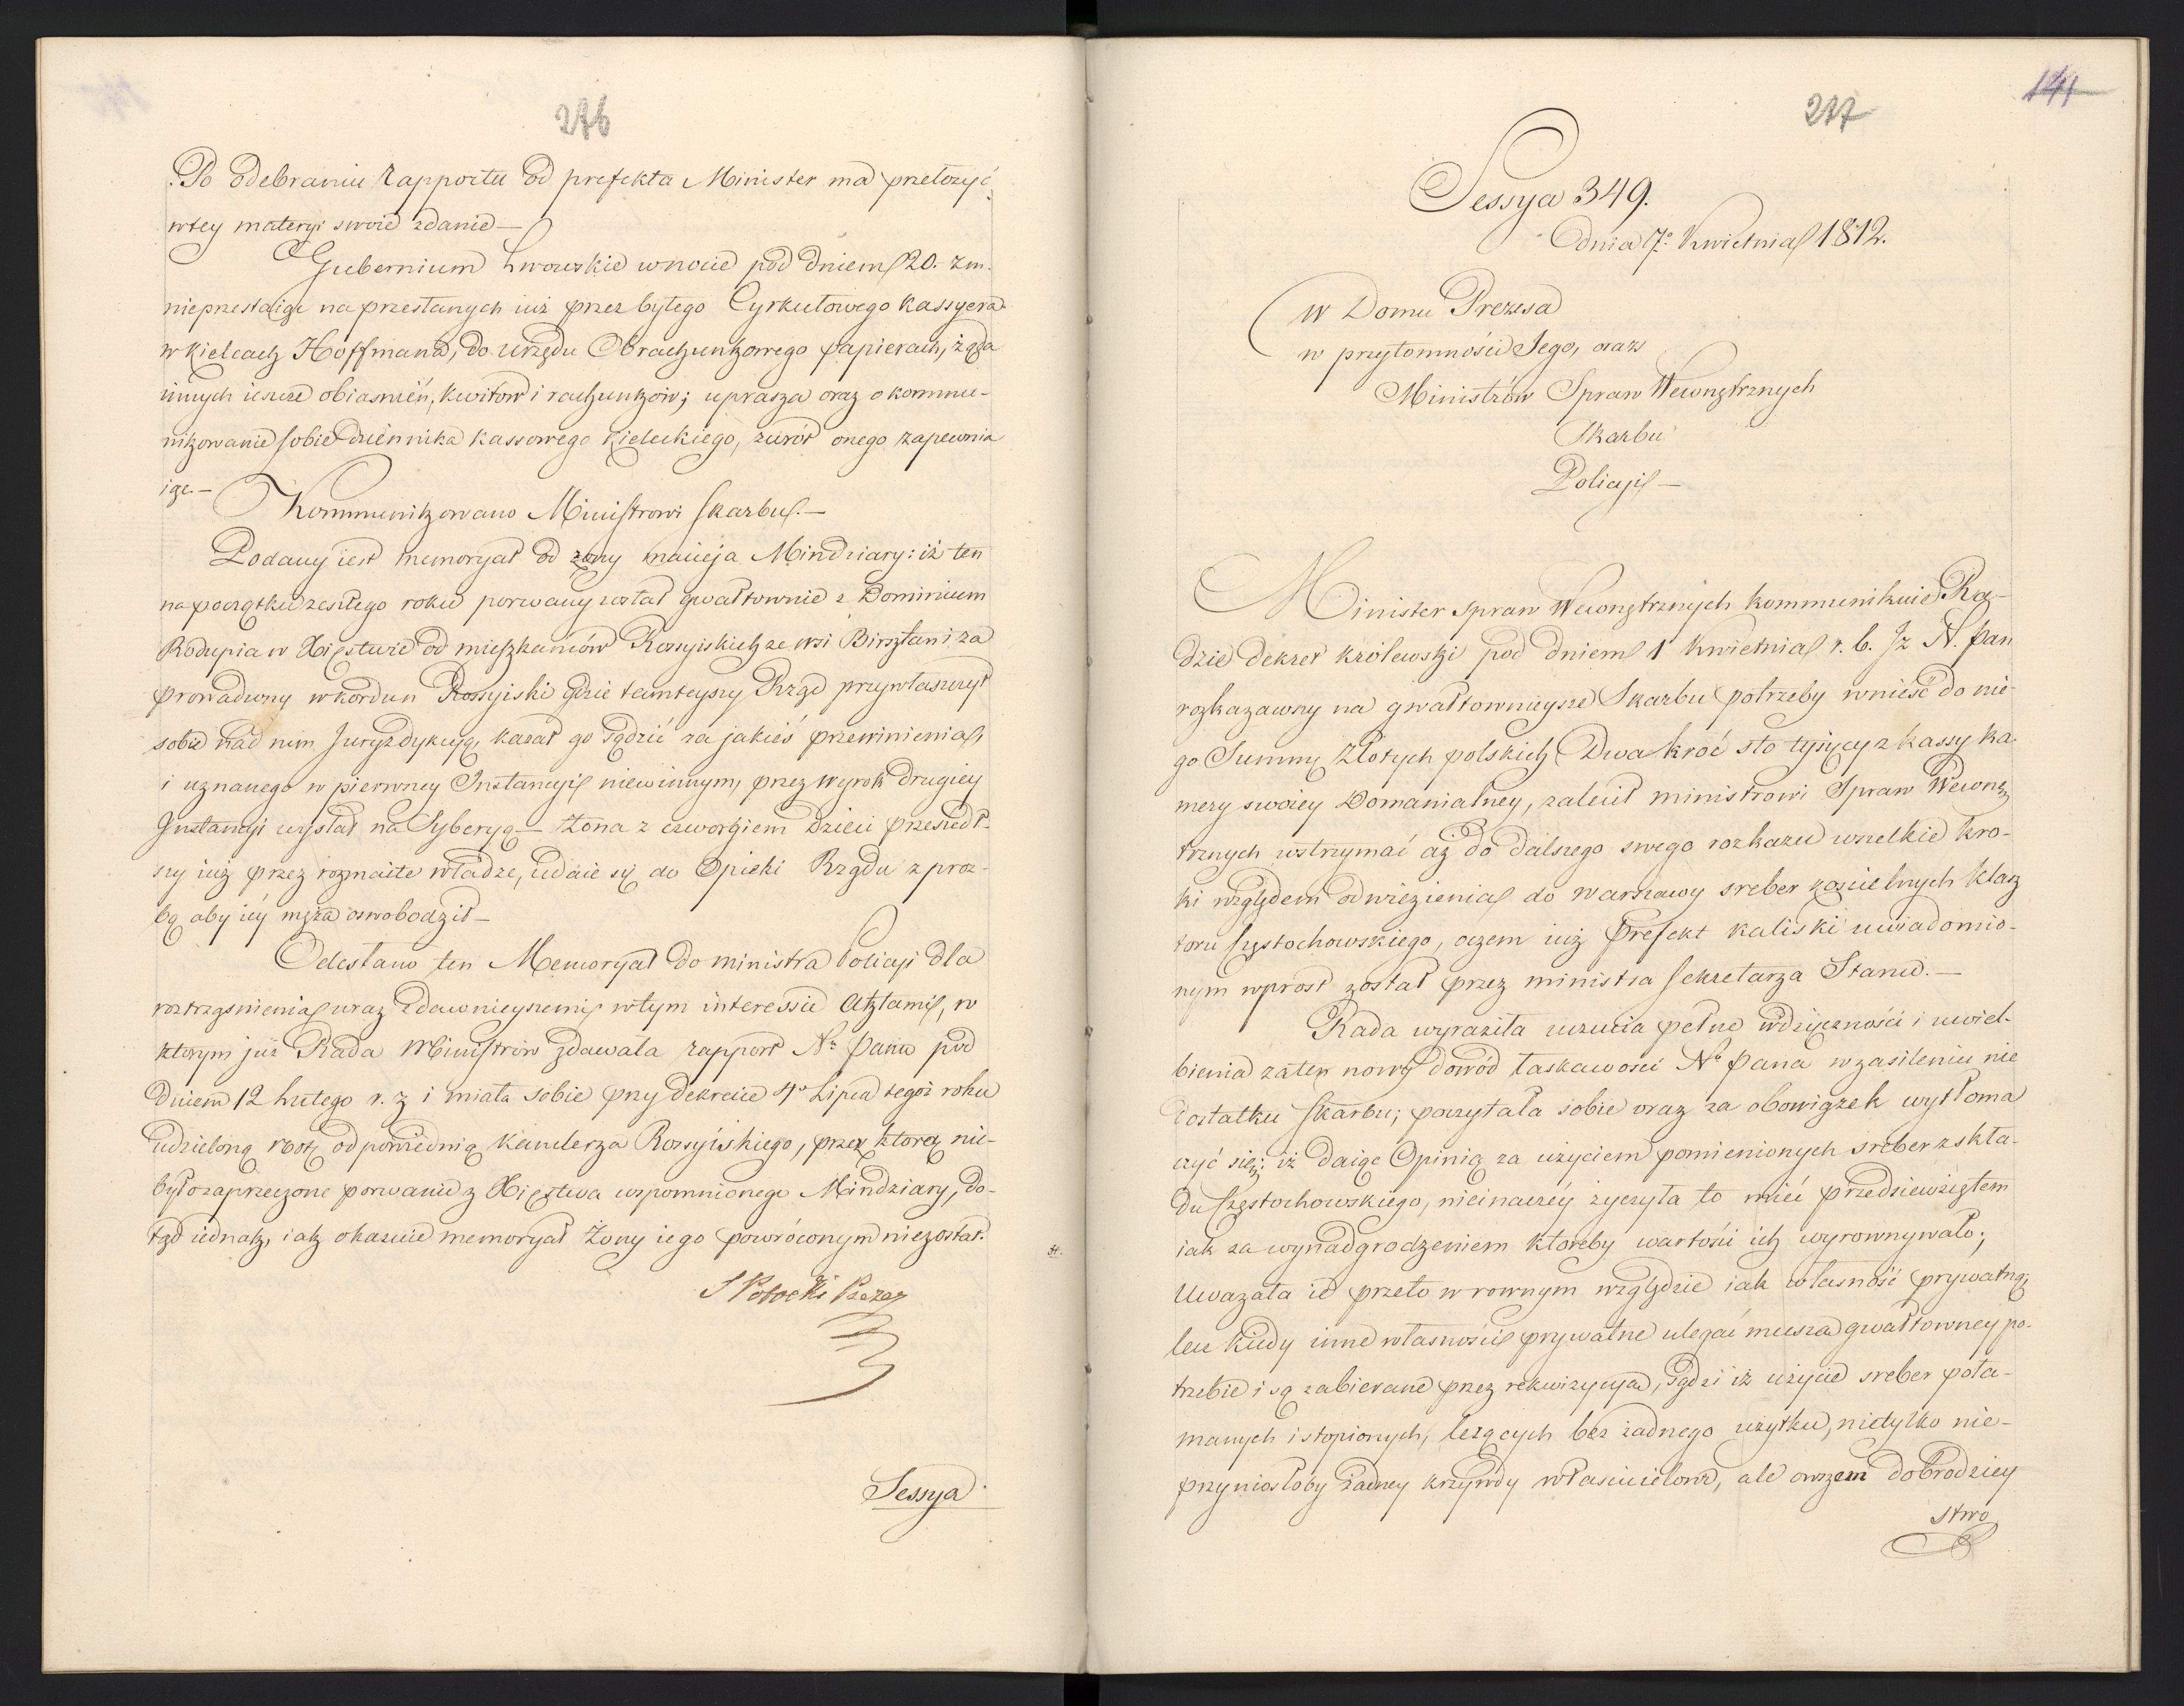 276
Po odebraniu Rapportu od prefekta Minister ma przełozyć
w tey materyi swoie zdanie —
Gubernium Lwowskie w nocie pod dniem 20. z m.
nieprzestaiąc na przesłanych iuż przez byłego Cyrkułowego Kassyera
w Kielcach Hoffmana, do Urzędu Obrachunkowego papierach, żąda
innych ieszcze obiasnień, kwitow i rachunkow; uprasza oraz o kommu-
nikowanie sobie dziennika kassowego Kieleckiego, zwrót onego zapewnia
iąc. —
Kommunikowano Ministrowi Skarbu. —
Podany iest memoryał od żony Macieja Mindziary: iż ten
na początku zeszłego roku porwany został gwałtownie z Dominium
Rodupia w Xięstwie od mieszkańców Rossyiskich ze wsi Birsztan i za
prowadzony w kordun Rossyiski gdzie tamteyszy Rząd przywłaszczył
sobie nad nim Juryzdykcyą, kazał go sądzić za jakieś przewinienia,
i uznanego w pierwszey Instancyi niewinnym, przez wyrok drugiey
Instancyi wysłał na Syberyą — Żona z czworgiem dzieci przeszedł-
szy iuż przez rozmaite władze, udaie się do Opieki Rządu z proz-
bą aby iéy męża oswobodził —
Odesłano ten Memoryał do ministra Policyi dla
roztrząsnienia wraz z dawnieyszemi w tym interessie Aktami, w
ktorym już Rada Ministrów zdawała rapport Nu Panu pod
dniem 12 Lutego r. z i miała sobie przy dekrecie 4o Lipca tegoż roku
udzieloną notę odpowiednią Kanclerza Rossyiskiego, przez którą nie-
było zaprzeczone porwanie z Xięstwa wspomnionego Mindziary, do-
tąd iednak, iak okazuie memoryał Żony iego powróconym niezostał.
S Potocki Prezes
Sessya
141
277
Sessya 349.
dnia 7o. Kwietnia 1812.
W Domu Prezesa
w przytomności Jego, oraz
Ministrów Spraw Wewnętrznych
Skarbu
Policyi —
Minister Spraw Wewnętrznych kommunikuie Ra-
dzie dekret królewski pod dniem 1 Kwietnia r. b. Jż N. Pan
rozkazawszy na gwałtownieysze Skarbu potrzeby wnieść do nie-
go Summę Złotych polskich Dwa kroć sto tysięcy z kassy ka-
mery swoiey Domanialney, zalecił ministrowi Spraw Wewnę
trznych wstrzymać aż do dalszego swego rozkazu wszelkie kro-
ki względem odwiezienia do Warszawy sreber kościelnych klasz
toru Częstochowskiego, oczem iuż Prefekt kaliski uwiadomio-
nym wprost został przez ministra Sekretarza Stanu. —
Rada wyraziła uczucia pełne wdzięczności i uwiel-
bienia za ten nowy dowód łaskawości No Pana w zasileniu nie
dostatku Skarbu; poczytała sobie oraz za obowiązek wytłoma
czyć się; iż daiąc Opinią za użyciem pomienionych sreber z skła-
du Częstochowskiego, nieinaczéy życzyła to mieć przedsiewziętem
iak za wynadgrodzeniem ktoreby wartości ich wyrownywało;
Uwazała ie przeto w rownym względzie iak własność prywatną,
lecz kiedy inne własności prywatne ulegać musza gwałtowney po-
trzebie i są zabierane przez rekwizycyą, sądzi iż użycie sreber poła-
manych i stopionych, leżących bez żadnego użytku, nietylko nie-
przyniosłoby żadney krzywdy właścicielowi, ale owszem dobrodziey
stwo